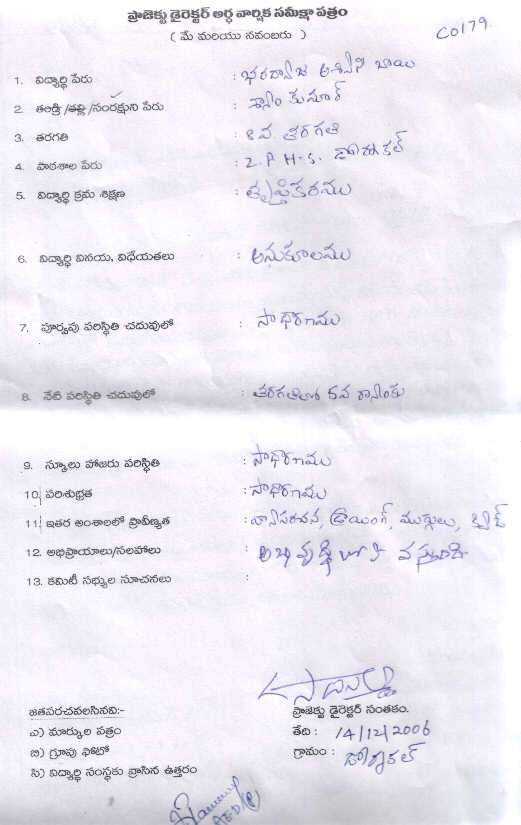 ప్రాజెక్టు డైరెక్టర్ అర్ధ వార్షిక సమీక్షా పత్రం
( మే మరియు నవంబరు )
CO179
1. విద్యార్థి పేరు : భరద్వాజ అశ్విని బాయి
2. తండ్రి /తల్లి /సంరక్షుని పేరు : శ్యాం కుమార్
3. తరగతి : 8 వ తరగతి
4. పాఠశాల పేరు : Z.P.H.S. డోర్నకల్
5. విద్యార్థి క్రమ శిక్షణ : తృప్తికరము
6. విద్యార్థి వినయ, విధేయతలు : అనుకూలము
7. పూర్వపు పరిస్థితి చదువులో : సాధారణము
8. నేటి పరిస్థితి చదువులో : తరగతిలో 5వ ర్యాంకు
9. స్కూలు హాజరు పరిస్థితి : సాధారణము
10. పరిశుభ్రత : సాధారణము
11. ఇతర అంశాలలో ప్రావీణ్యత : వ్యాసరచన, డ్రాయింగ్, ముగ్గులు, క్విజ్
12. అభిప్రాయాలు/సలహాలు : అభివృద్ధి లోకి వస్తుంది
13. కమిటీ సభ్యుల సూచనలు :
జతపరచవలసినవి:-
ఎ) మార్కుల పత్రం
బి) గ్రూపు ఫోటో
సి) విద్యార్థి సంస్థకు వ్రాసిన ఉత్తరం
ప్రాజెక్టు డైరెక్టర్ సంతకం.
తేది : 14/12/2006
గ్రామం : డోర్నకల్